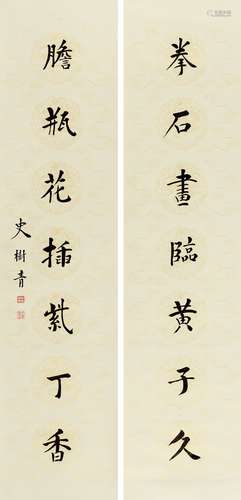 拳石畫臨黄子久
膽瓶花插紫丁香
史樹青